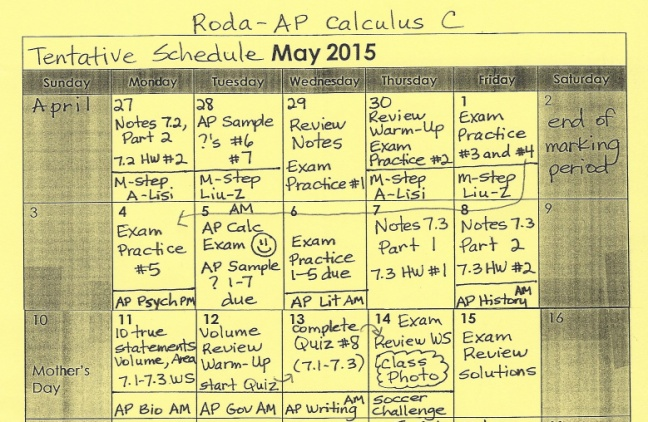 Roda-AP Calculus C
Tentative Schedule May 2015
Sunday Monday Tuesday Wednesday Thursday Friday Saturday
April
27
Notes 7.2,
Part 2
7.2 HW #2
M-Step
A-Lisi
28
AP Sample
?'s #6
#7
M-Step
Liu-Z
29
Review
Notes
Exam
Practice #1
30
Review
Warm-Up
Exam
Practice #2
M-Step
A-Lisi
1
Exam
Practice
#3 and #4
M-Step
Liu-Z
2
end of
marking
period
3
4
Exam
Practice
#5
AP Psych PM
5 AM
AP Calc
Exam
AP Sample
? 1-7
due
6
Exam
Practice
1-5 due
AP Lit AM
7
Notes 7.3
Part 1
7.3 HW #1
8
Notes 7.3
Part 2
7.3 HW #2
AP History AM
9
10
Mother's
Day
11
10 true
statements
Volume, Area
7.1-7.3 WS
AP Bio AM
12
Volume
Review
Warm-Up
start Quiz
AP Gov AM
13
complete
Quiz #8
(7.1-7.3)
AP Writing AM
14 Exam
Review WS
Class
Photo
Soccer
challenge
15
Exam
Review
Solutions
16